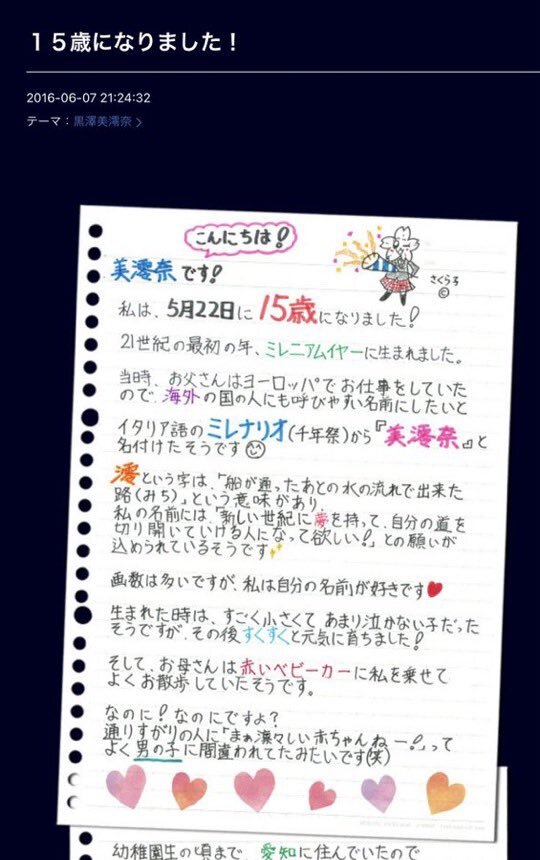 １５歳になりました！
2016-06-07 21:24:32
テーマ：黒澤美澪奈
こんにちは！
美澪奈です！
さくらろ
©
私は、5月22日に15歳になりました！
21世紀の最初の年、ミレニアムイヤーに生まれました。
当時、お父さんはヨーロッパでお仕事をしていた
ので、海外の国の人にも呼びやすい名前にしたいと
イタリア語のミレナリオ(千年祭)から『美澪奈』と
名付けたそうです
澪という字は、「船が通ったあとの水の流れで出来た
路(みち)」という意味があり、
私の名前には「新しい世紀に夢を持って、自分の道を
切り開いていける人になって欲しい！」との願いが
込められているそうです
画数は多いですが、私は自分の名前が好きです
生まれた時は、すごく小さくてあまり泣かない子だった
そうですが、その後すくすくと元気に育ちました！
そして、お母さんは赤いベビーカーに私を乗せて
よくお散歩していたそうです。
なのに！なのにですよ？
通りすがりの人に「まぁ凛々しい赤ちゃんねー！」って
よく男の子に間違われてたみたいです(笑)
幼稚園生の頃まで、愛知に住んでいたので